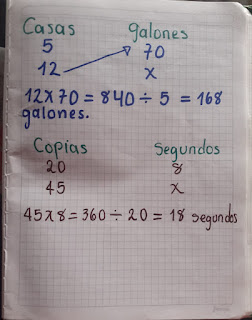 Casas galones
5 70
12 x
12x70 = 840 ÷ 5 = 168
galones.
Copias Segundos
20 8
45 x
45x8 = 360 ÷ 20 = 18 segundos